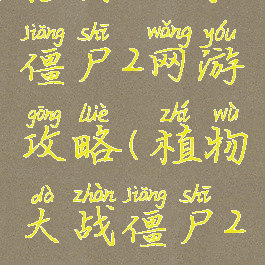 jiāng shī wǎng yóu
僵尸2网游
gōng lüè zhí wù
攻略(植物
dà zhàn jiāng shī
大战僵尸2